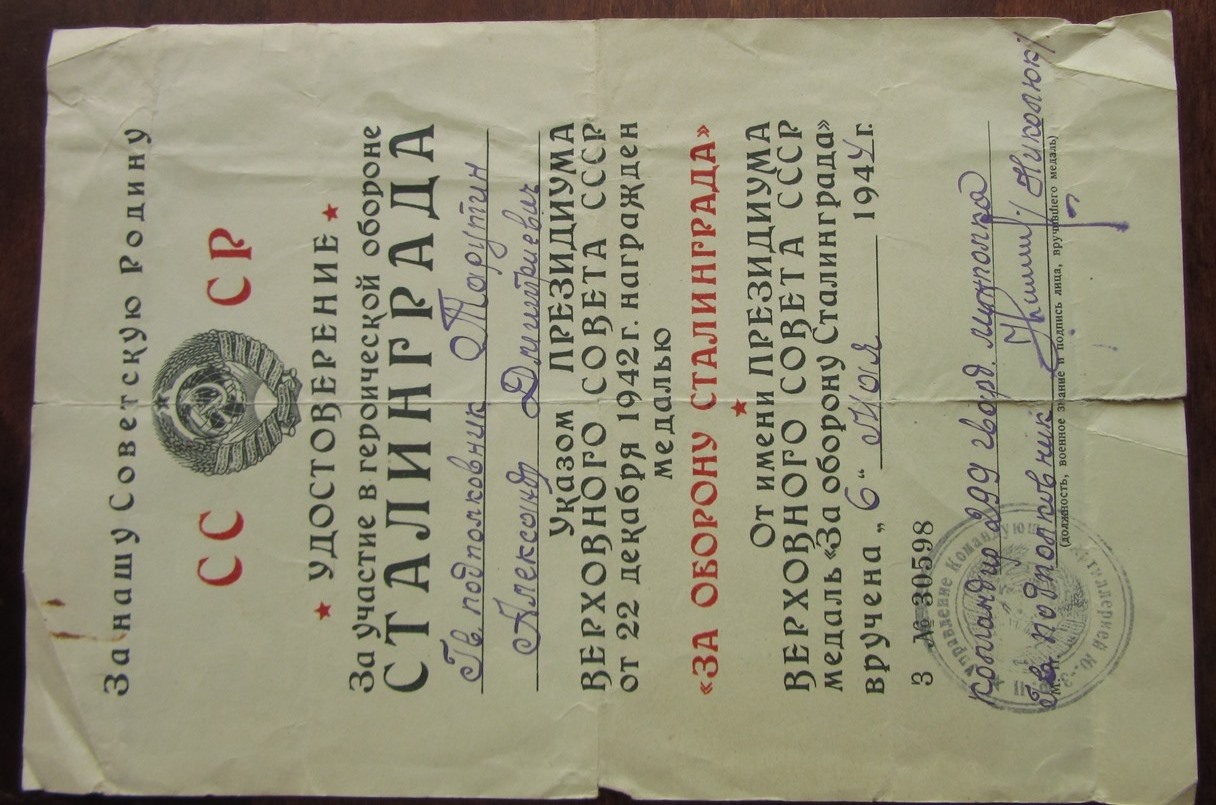 За нашу Советскую Родину
СС СР
УДОСТОВЕРЕНИЕ
За участие в героической обороне
СТАЛИНГРАДА
Гв. подполковник Тарутин
Александр Дмитриевич
Указом ПРЕЗИДИУМА
ВЕРХОВНОГО СОВЕТА СССР
от 22 декабря 1942 г. награжден
медалью
«ЗА ОБОРОНУ СТАЛИНГРАДА»
От имени ПРЕЗИДИУМА
ВЕРХОВНОГО СОВЕТА СССР
медаль «За оборону Сталинграда»
вручена „6“ Мая 1944 г.
З № 30598
Командир 299 гвард. минполка
Гв. подполковник /Николюк/
М.
(должность, военное звание и подпись лица, вручившего медаль)
Управление Команд